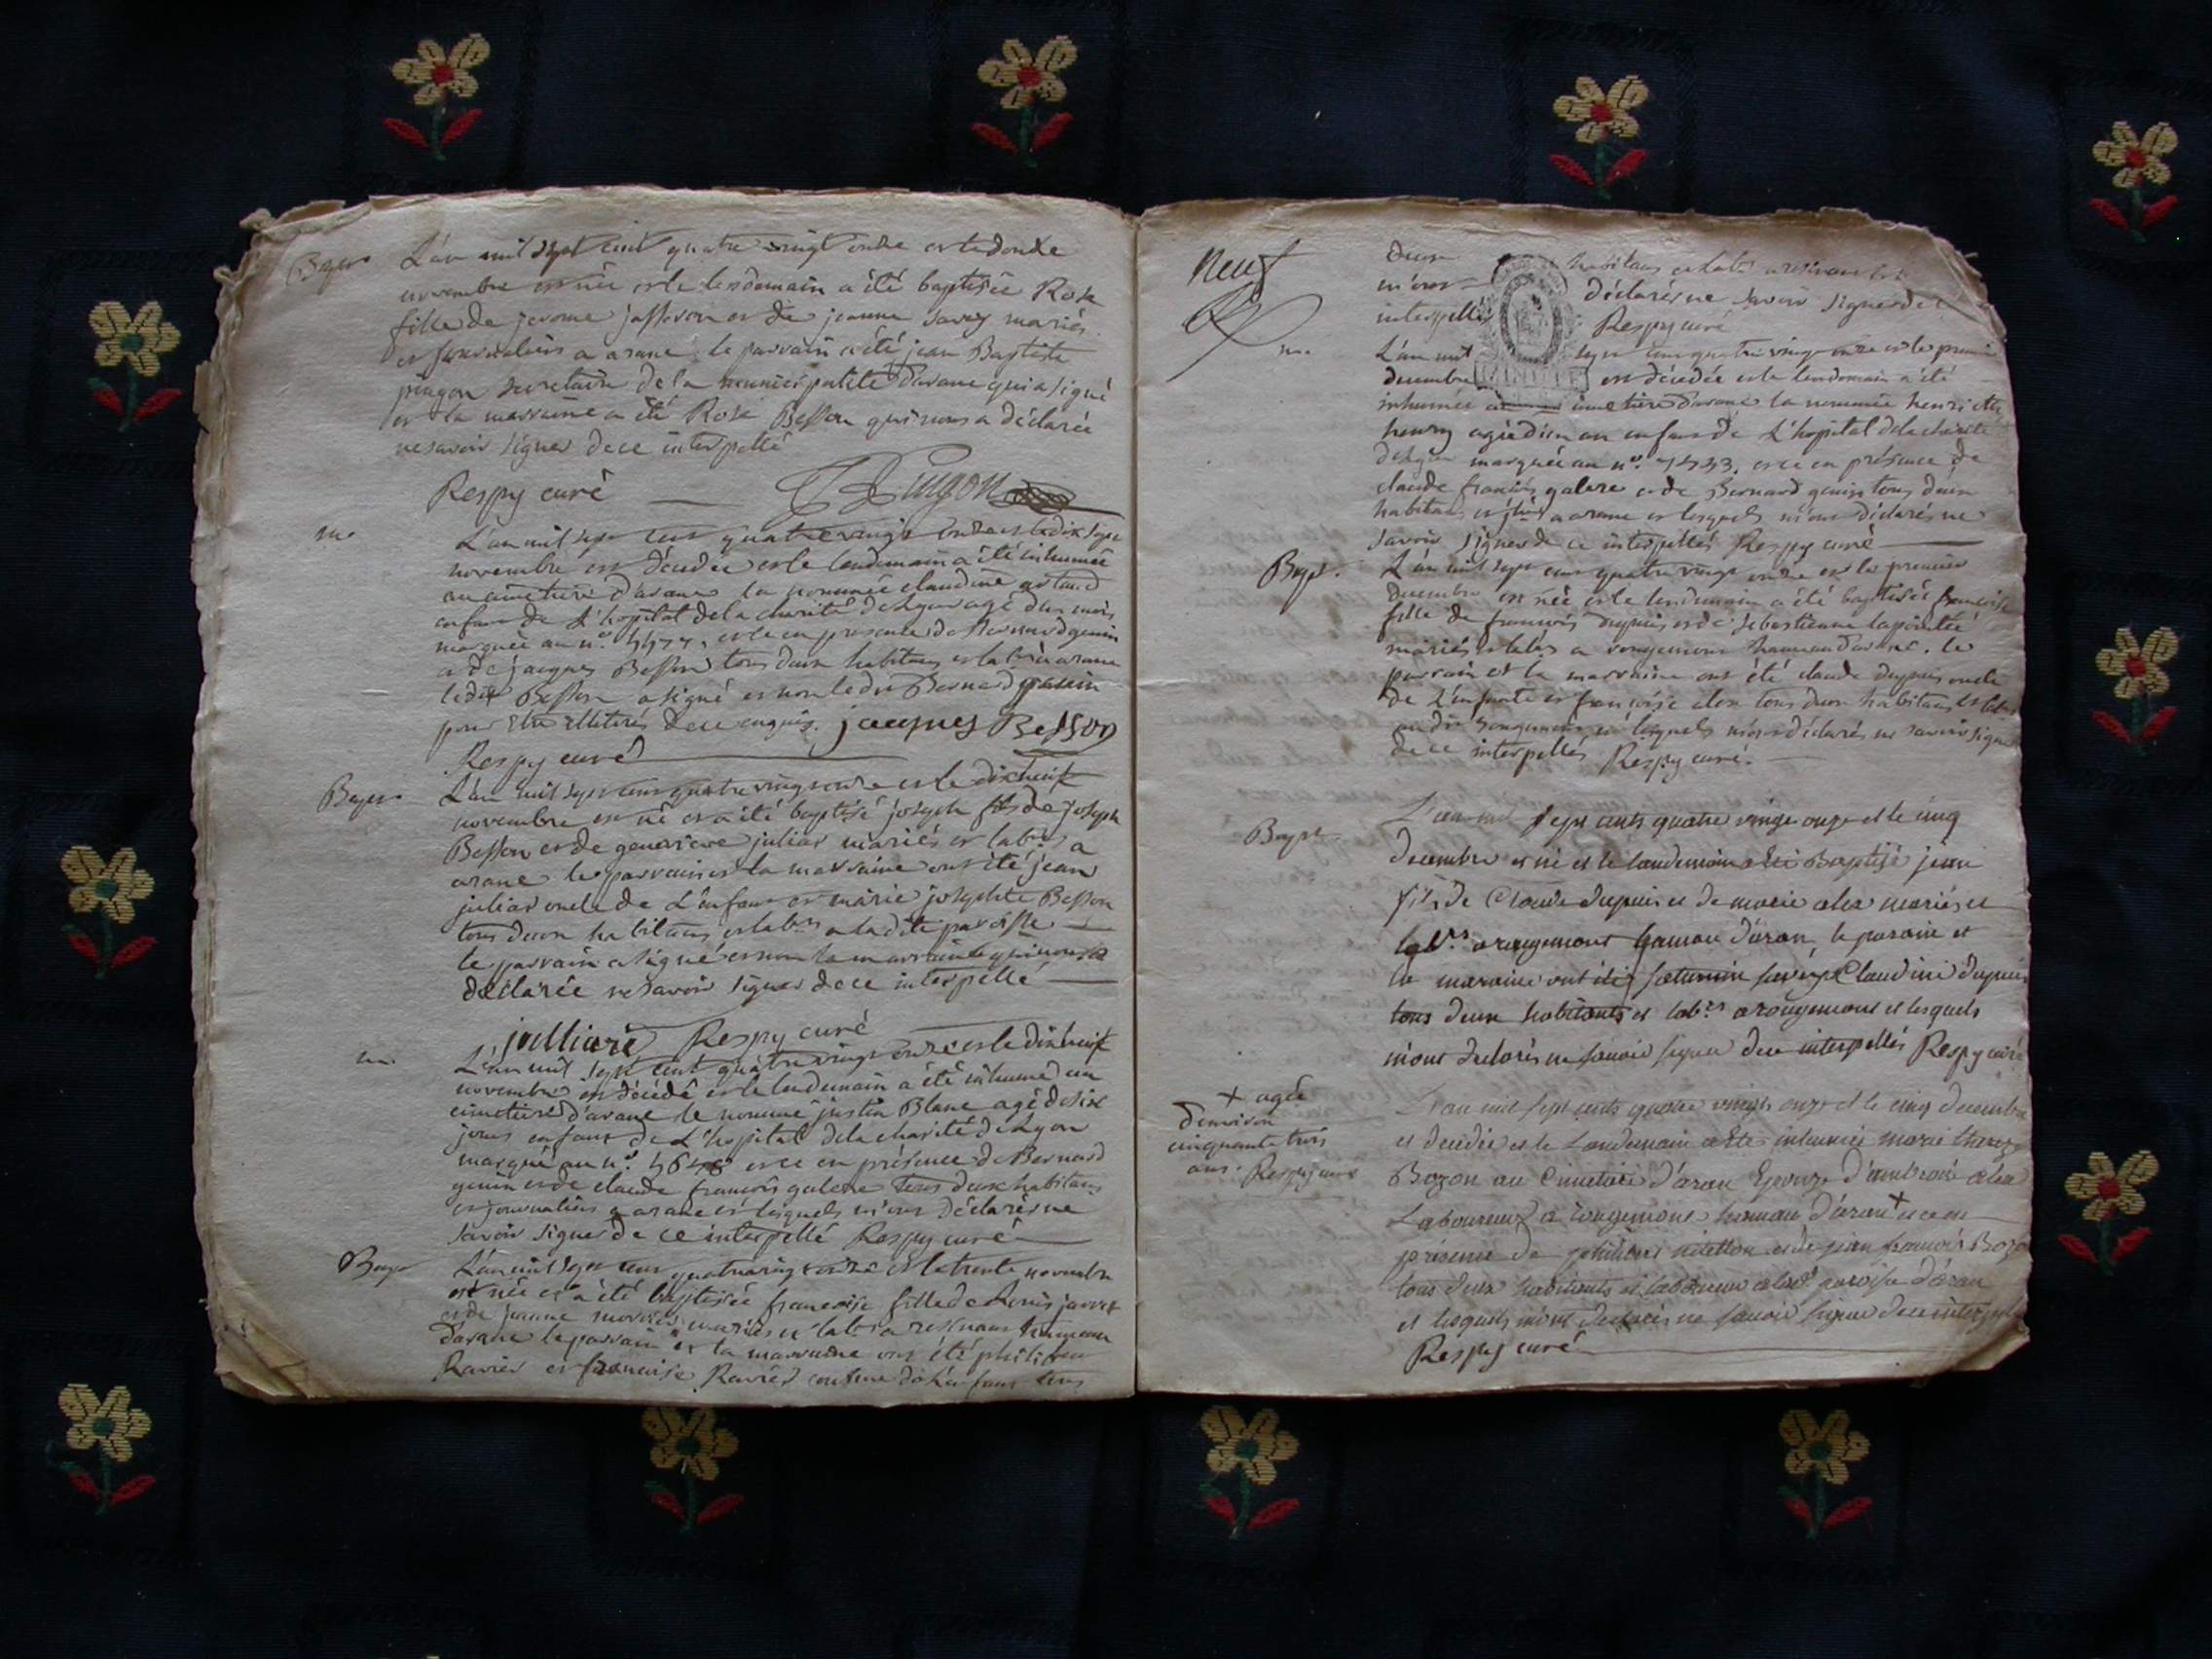 Bapt.
L'an mil sept cent quatre vingt onze et le douze
novembre est née et le lendemain a été baptisée Rose
fille de jerome jasseron et de jeanne savey mariés
et journaliers a arane le parrain a été jean Baptiste
pingon secretaire de la municipalité d'arane qui a signé
et la marraine a été Rose Besson qui nous a déclaré
ne savoir signer de ce interpellé
Respy curé Pingon
m.
L'an mil sept cent quatre vingt onze et le dix sept
novembre est décédée et le lendemain a été inhumée
au cimetiere d'arane la nommée claudine
enfant de L'hopital de la charité de Lyon agé d'un mois
marquée au n°. et ce en presence de Bernard genin
et de jacques Besson tous deux habitans et lab.rs a arane
ledit Besson a signé et non ledit Bernard genin
pour être illitéré de ce enquis. jacques Besson
Respy curé
Bapt.
L'an mil sept cent quatre vingt onze et le dix huit
novembre est né et a été baptisé joseph fils de joseph
Besson et de genevieve juliar mariés et lab.rs a
arane le parrain et la marraine ont été jean
juliar oncle de L'enfant et marie josephte Besson
tous deux habitans et lab.rs a la dite paroisse
le parrain a signé et non la marraine qui nous a
déclarée ne savoir signer de ce interpellé
julliard Respy curé
m.
L'an mil sept cent quatre vingt onze et le dix huit
novembre est décédé et le lendemain a été inhumé au
cimetiere d'arane le nommé justin Blanc agé de six
jours enfant de L'hopital de la charité de Lyon
marqué au n°. et ce en présence de Bernard
genin et de claude françois galere tous deux habitans
et journaliers a arane et lesquels m'ont déclarés ne
savoir signer de ce interpellé Respy curé
Bapt.
L'an mil sept cent quatre vingt onze et le trente novembre
est née et a été baptisée françoise fille de Louis
et de jeanne mariés et lab.rs a hameau
d'arane le parrain et la marraine ont été philibert
Ravier et françoise Ravier cousine de L'enfant tous
neuf
deux habitans et lab.rs a
m'ont déclarés ne savoir signer de ce
interpellés Respy curé
m.
L'an mil sept cent quatre vingt onze et le premier
decembre est décédée et le lendemain a été
inhumée cimetiere d'arane la nommée henriette
henry agée d'un an enfant de L'hopital de la charité
de Lyon marquée au n°. et ce en présence de
claude françois galere et de Bernard genin tous deux
habitans et a arane et lesquels m'ont déclarés ne
savoir signer de ce interpellés Respy curé
Bapt.
L'an mil sept cent quatre vingt onze et le premier
decembre est née et le lendemain a été baptisée françoise
fille de françois dupuis et de sebastienne lapointe
mariés et lab.rs a rougemont hameau d'arane. le
parrain et la marraine ont été claude dupuis oncle
de L'enfante et françoise alex tous deux habitans et lab.rs
audit rougemont et lesquels m'ont déclarés ne savoir signer
de ce interpellés Respy curé.
Bapt.
L'an mil sept cents quatre vingt onze et le cinq
decembre est né et le landemain a été Baptisé jean
fils de Claude dupuis et de marie alex mariés et
lab.rs a rougemont hamau d'aran, le parain et
la maraine ont été Claudine dupuis
tous deux habitants et lab.rs a rougemont et lesquels
m'ont declarés ne savoir signer de ce interpellés Respy curé
+ agée
d'environ
cinquante trois
ans. Respy curé
L'an mil sept cents quatre vingts onze et le cinq decembre
et decedée et le Landemain a été inhumée marie thereze
Bozon au Cimetiere d'aran Epouze d'ambroise alex
Laboureur a rougemont hamau d'aran + et ce en
présence de et de jean françois Bozon
tous deux habitants et laboureur a lad. paroisse d'aran
et lesquels m'ont declarés ne savoir signer de ce interpellés
Respy curé